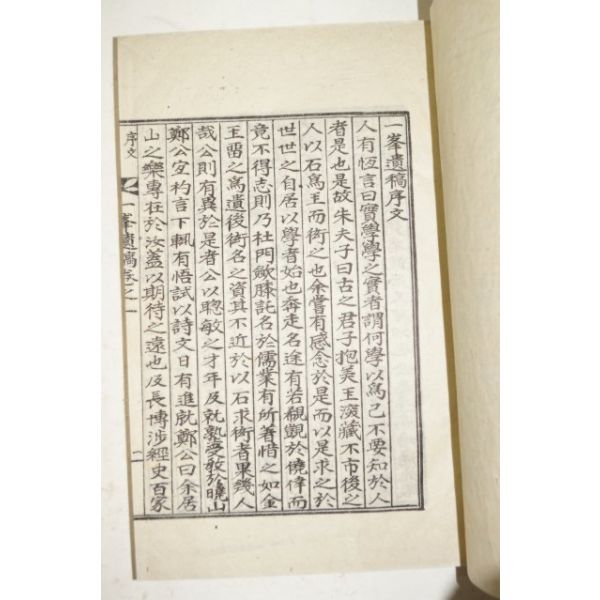 一峯遺稿序文
人有恆言曰實學學之實者謂何學以爲己不要知於人
者是也是故朱夫子曰古之君子抱美玉深藏不市後之
人以石爲玉而衒之也余嘗有感念於是而以是求之於
世世之自居以學者始也奔走名途有若覬覦於僥倖而
竟不得志則乃杜門斂膝託名於儒業有所著惜之如金
玉留之爲遺後衒名之資其不近於以石求衒者果幾人
哉公則有異於是者公以聰敏之才年及就塾受敎於曉山
鄭公室杓言下輒有悟試以詩文日有進就鄭公曰余居
山之樂專在於汝蓋以期待之遠也及長博涉經史百家
序文
一峯遺稿卷之一
一